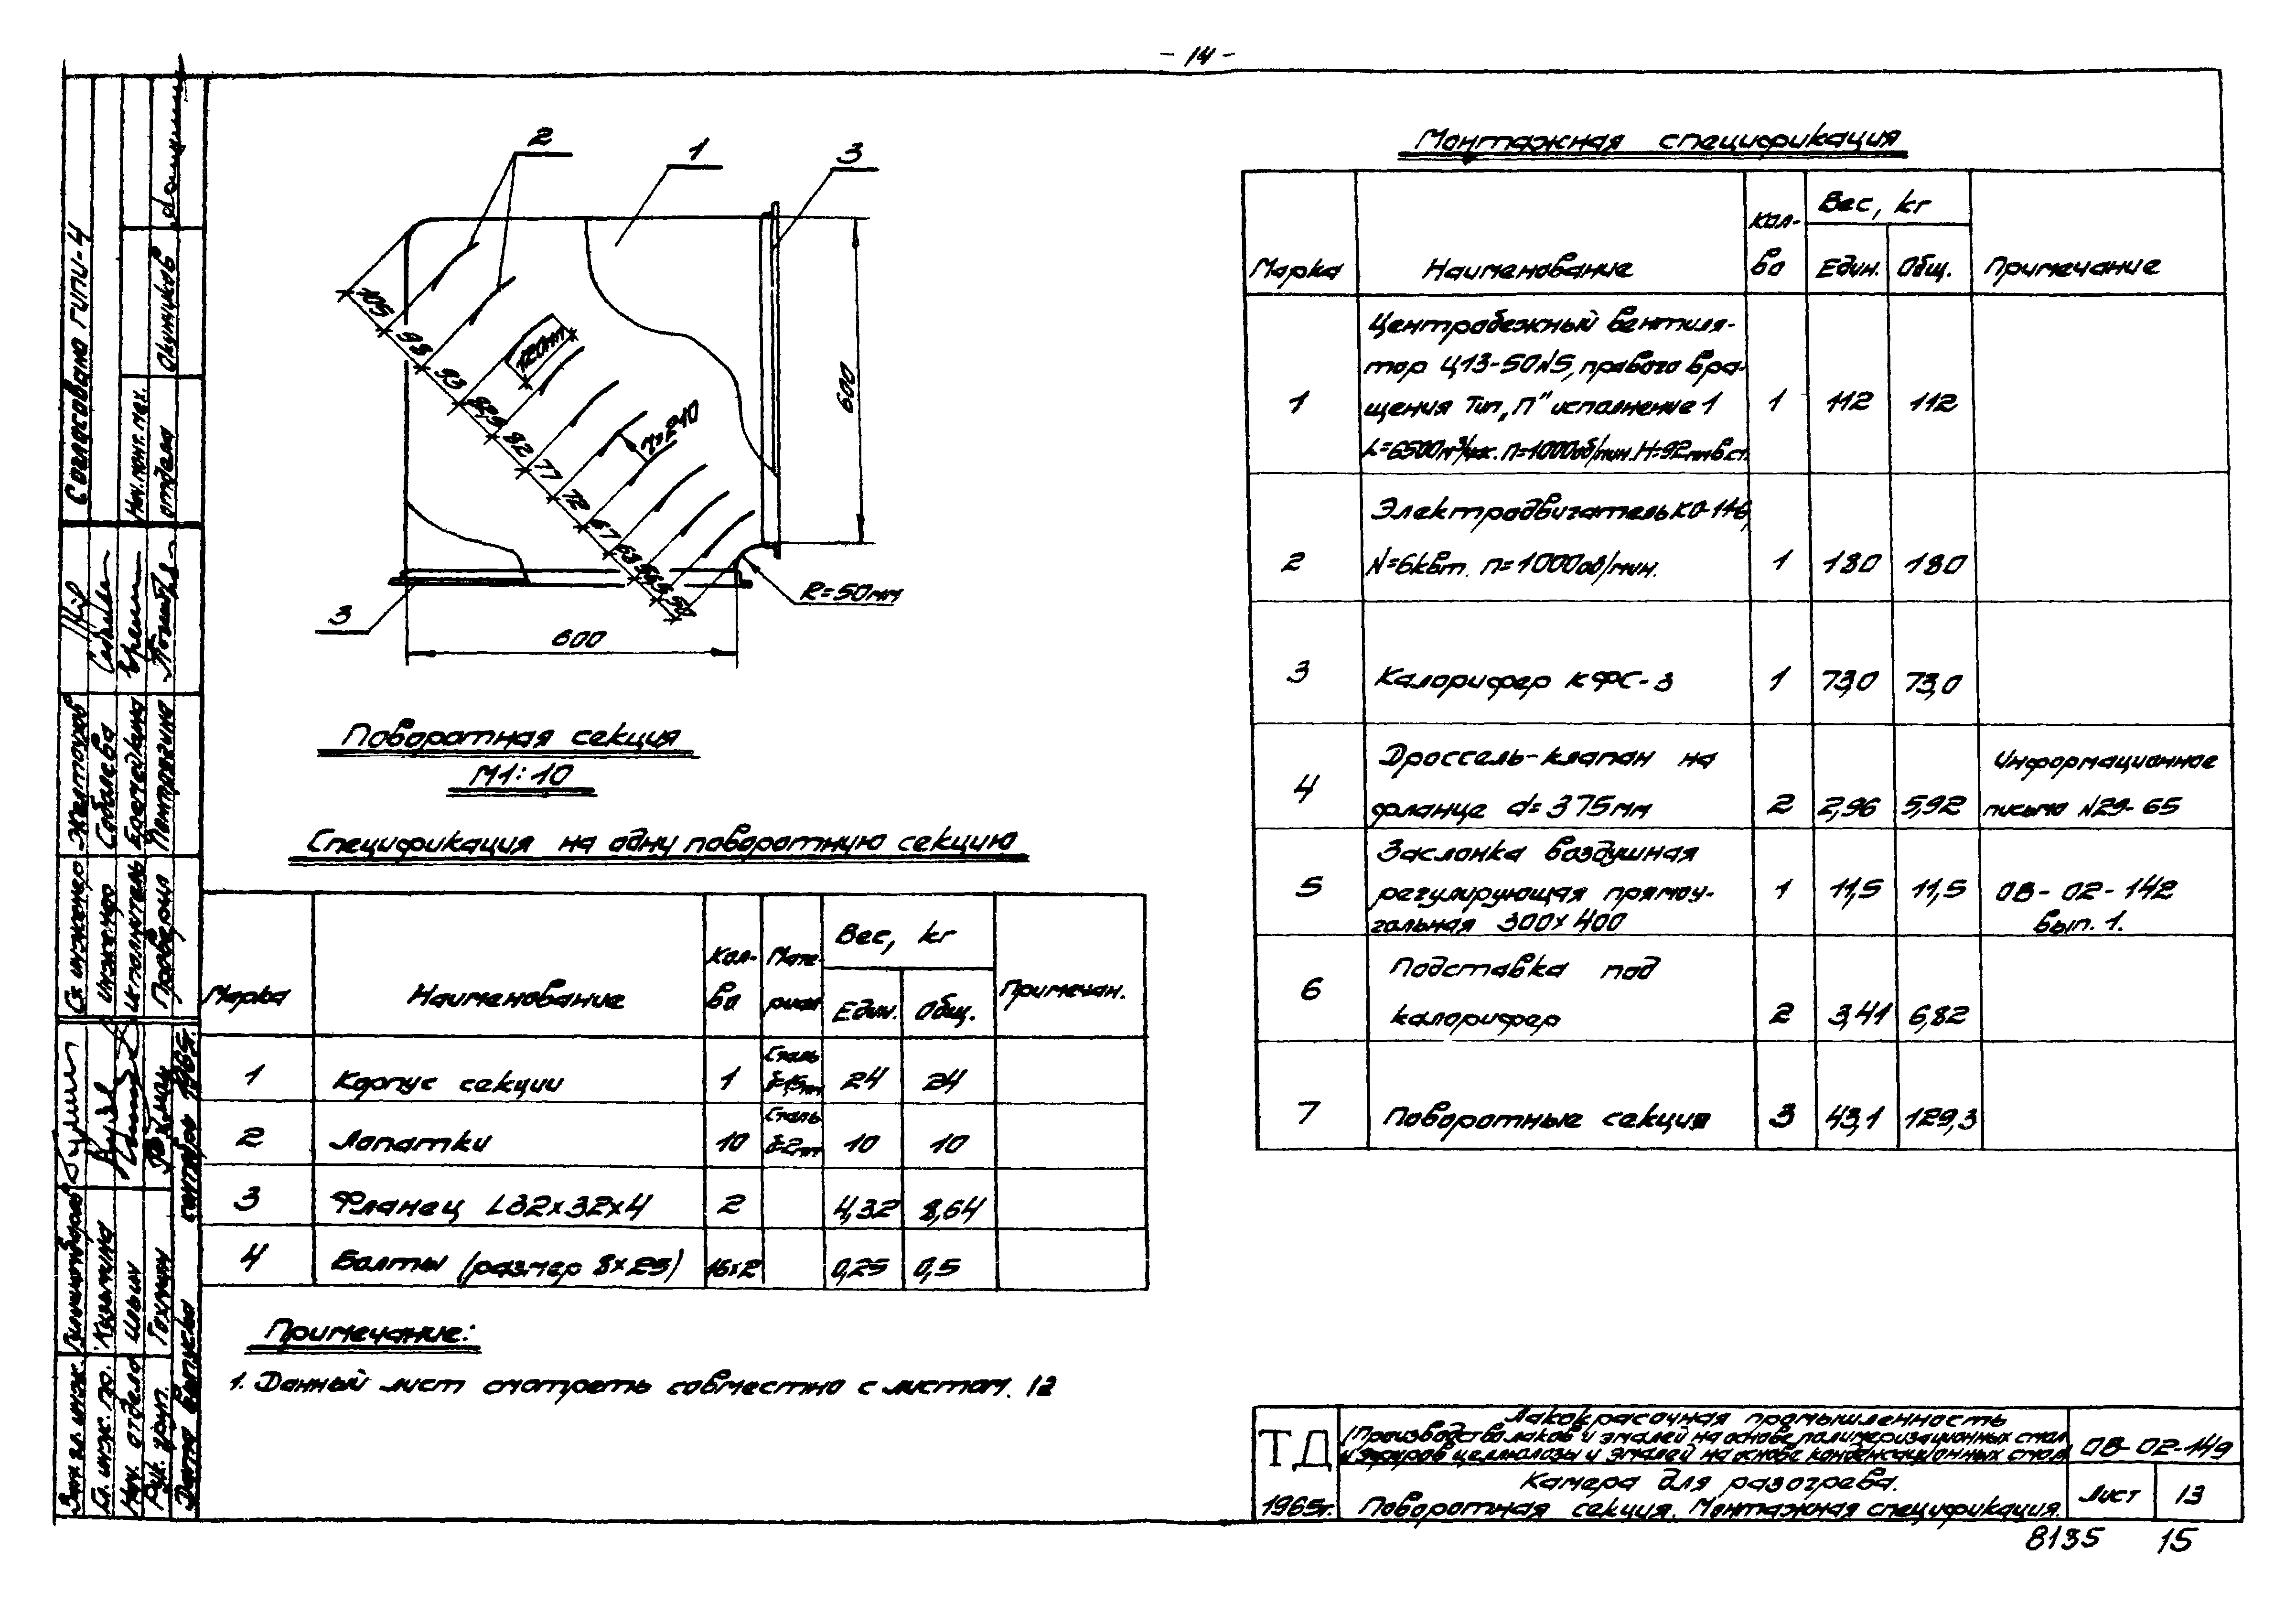 - 14 -
2
1
3
105
98
93
82,5
82
77
72
67
63
50
120мм
r=210
600
R=50мм
3
600
Поворотная секция
М1:10
Спецификация на одну поворотную секцию
Марка Наименование Кол-во Мате-риал Вес, кг Един. Общ. Примечан.
1 Корпус секции 1 Сталь δ=1,5мм 24 24
2 Лопатки 10 Сталь δ=2мм 10 10
3 Фланец L32х32х4 2 4,32 8,64
4 Болты (размер 8х25) 16х2 0,25 0,5
Примечание:
1. Данный лист смотреть совместно с листом. 12
Монтажная спецификация
Марка Наименование Кол-во Вес, кг Един. Общ. Примечание
Центробежный вентиля-
тор Ц13-50 N5, правого вра-
1 щения Тип „П" исполнение 1 1 112 112
L=6500м³/час. n=1000об/мин. H=92мм в.ст.
Электродвигатель КО-11-6,
2 N=6квт. n=1000об/мин. 1 180 180
3 Калорифер КФС-3 1 73,0 73,0
Дроссель-клапан на Информационное
4 фланце d=375мм 2 2,96 5,92 письмо N29-65
Заслонка воздушная
5 регулирующая прямоу- 1 11,5 11,5 ОВ-02-142
гольная 300х400 Вып. 1.
Подставка под
6 калорифер 2 3,41 6,82
7 Поворотные секция 3 43,1 129,3
ТД
1965г.
Лакокрасочная промышленность
/Производство лаков и эмалей на основе полимеризационных смол
и эфиров целлюлозы и эмалей на основе конденсационных смол/
ОВ-02-149
Камера для разогрева.
Поворотная секция. Монтажная спецификация.
Лист 13
8135 15
Согласовано ГИПИ-4
Нач. монт. мех.
отдела
Ст. инженер
инженер Соболева
исполнитель
Проверил
Зам. гл. инж.
Гл. инж. пр. Кузьмина
Нач. отдела Ильин
Рук. груп. Гохман
Дата выпуска сентябрь 1965г.